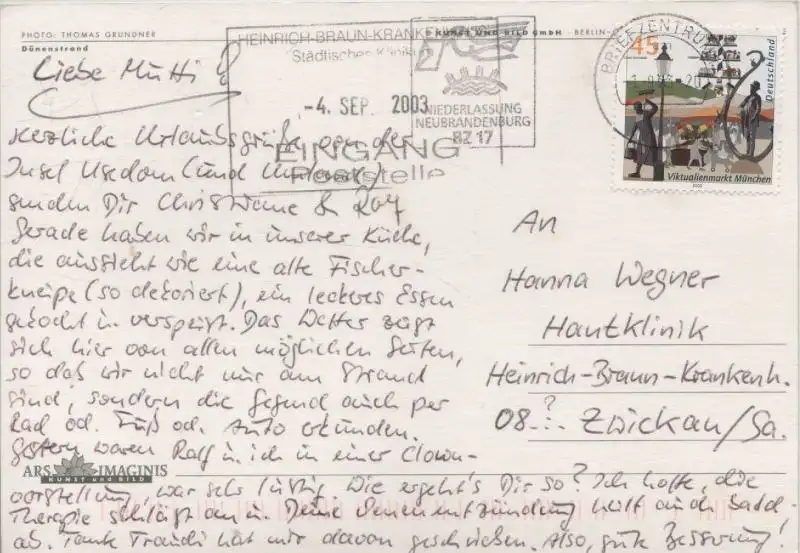 PHOTO: THOMAS GRUNDNER
Dünenstrand
KUNST UND BILD GmbH · BERLIN
HEINRICH-BRAUN-KRANKE
Städtisches Klinik
-4. SEP. 2003
EINGANG
Poststelle
NIEDERLASSUNG
NEUBRANDENBURG
BZ 17
BRIEFZENTRUM
45
Deutschland
Viktualienmarkt München
2002
Liebe Mutti!
Herzliche Urlaubsgrüße von der
Insel Usedom (und
senden Dir Christiane &
Gerade haben wir in unserer Küche,
die aussieht wie eine alte Fischer-
kneipe (so dekoriert), ein leckeres Essen
gekocht u. verspeist. Das Wetter zeigt
sich hier von allen möglichen Seiten,
so daß wir nicht nur am Strand
sind, sondern die Gegend auch per
Rad od. Fuß od. Auto erkunden.
Gestern waren Ralf u. ich in einer Clown-
vorstellung, war sehr lustig. Wie ergeht's Dir so? Ich hoffe, die
Therapie schlägt an u. Deine Venenentzündung heilt auch bald
ab. Tante Traudi hat mir davon geschrieben. Also, gute Besserung!
ARS IMAGINIS
KUNST und BILD
An
Hanna Wegner
Hautklinik
Heinrich-Braun-Krankenh.
08..? Zwickau/Sa.